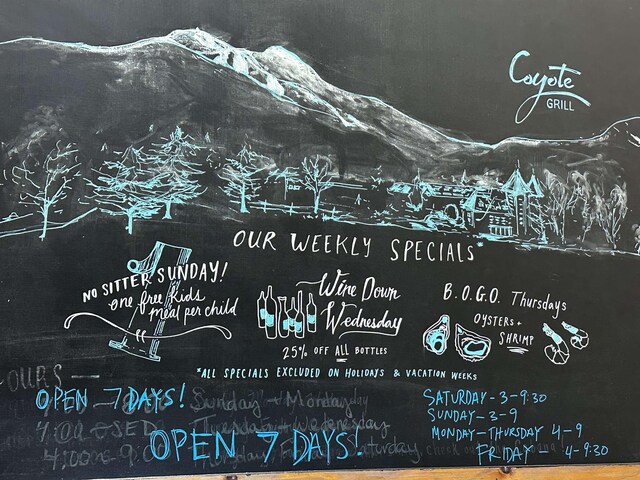 Coyote
GRILL
OUR WEEKLY SPECIALS*
NO SITTER SUNDAY!
one free kids
meal per child
Wine Down
Wednesday
25% OFF ALL BOTTLES
B.O.G.O. Thursdays
OYSTERS +
SHRIMP
*ALL SPECIALS EXCLUDED ON HOLIDAYS & VACATION WEEKS
OURS
OPEN 7 DAYS!
Sunday + Monday
Tuesday + Wednesday
OPEN 7 DAYS!
Saturday
SATURDAY - 3-9:30
SUNDAY - 3-9
MONDAY-THURSDAY 4-9
FRIDAY - 4-9:30